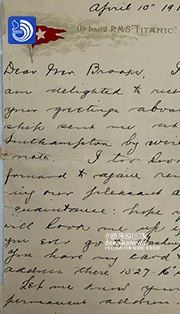 April 10th 191
On board R.M.S. "TITANIC".
Dear Mr. Broops, I
am delighted to rec
your greetings aboa
ship sent me at
Southampton by wire
note. I too lo
forward to again ren
ing our pleasant a
quaintance: hope y
will look me up if
you ever go
you have my card
address there 10.27-16
Let me know your
permanent address